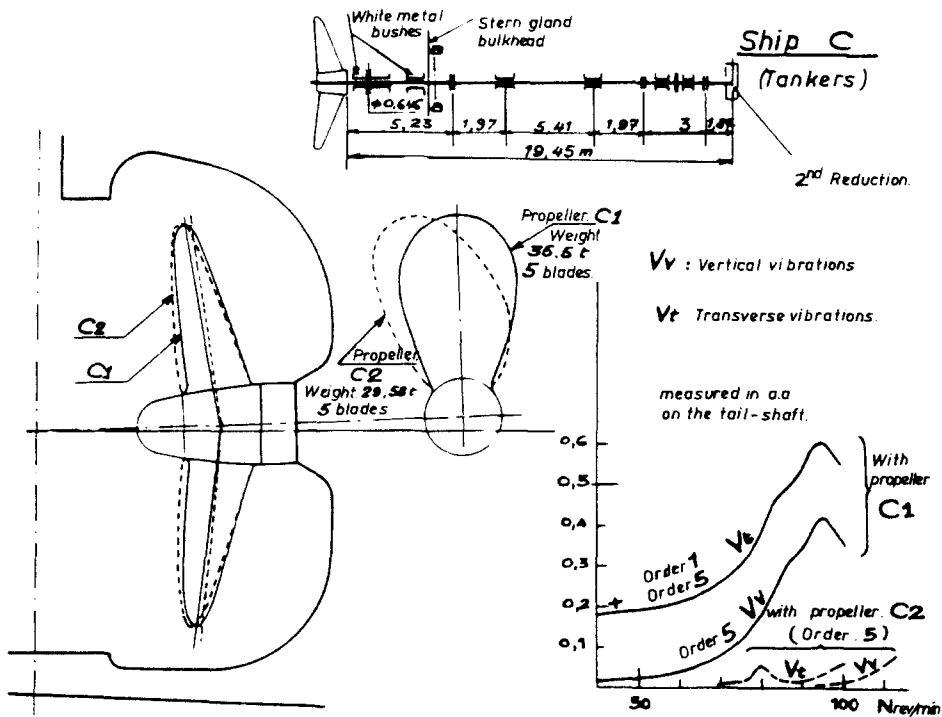 White metal
bushes
Stern gland
bulkhead
Ship C
(Tankers)
ϕ0,645
5,23
1,97
5,41
1,97
3
19,45 m
2nd Reduction.
Propeller C1
Weight
36.5 t
5 blades.
C2
C1
Propeller
C2
Weight 29,58t
5 blades
Vv : Vertical vibrations
Vt Transverse vibrations.
measured in a.a
on the tail-shaft.
0,6
0,5
0,4
0,3
0,2
0,1
With
propeller
C1
Vt
Order 1
+ Order 5
Vv
Order 5
with propeller. C2
(Order. 5)
Vt
Vv
50
100
N rev/min